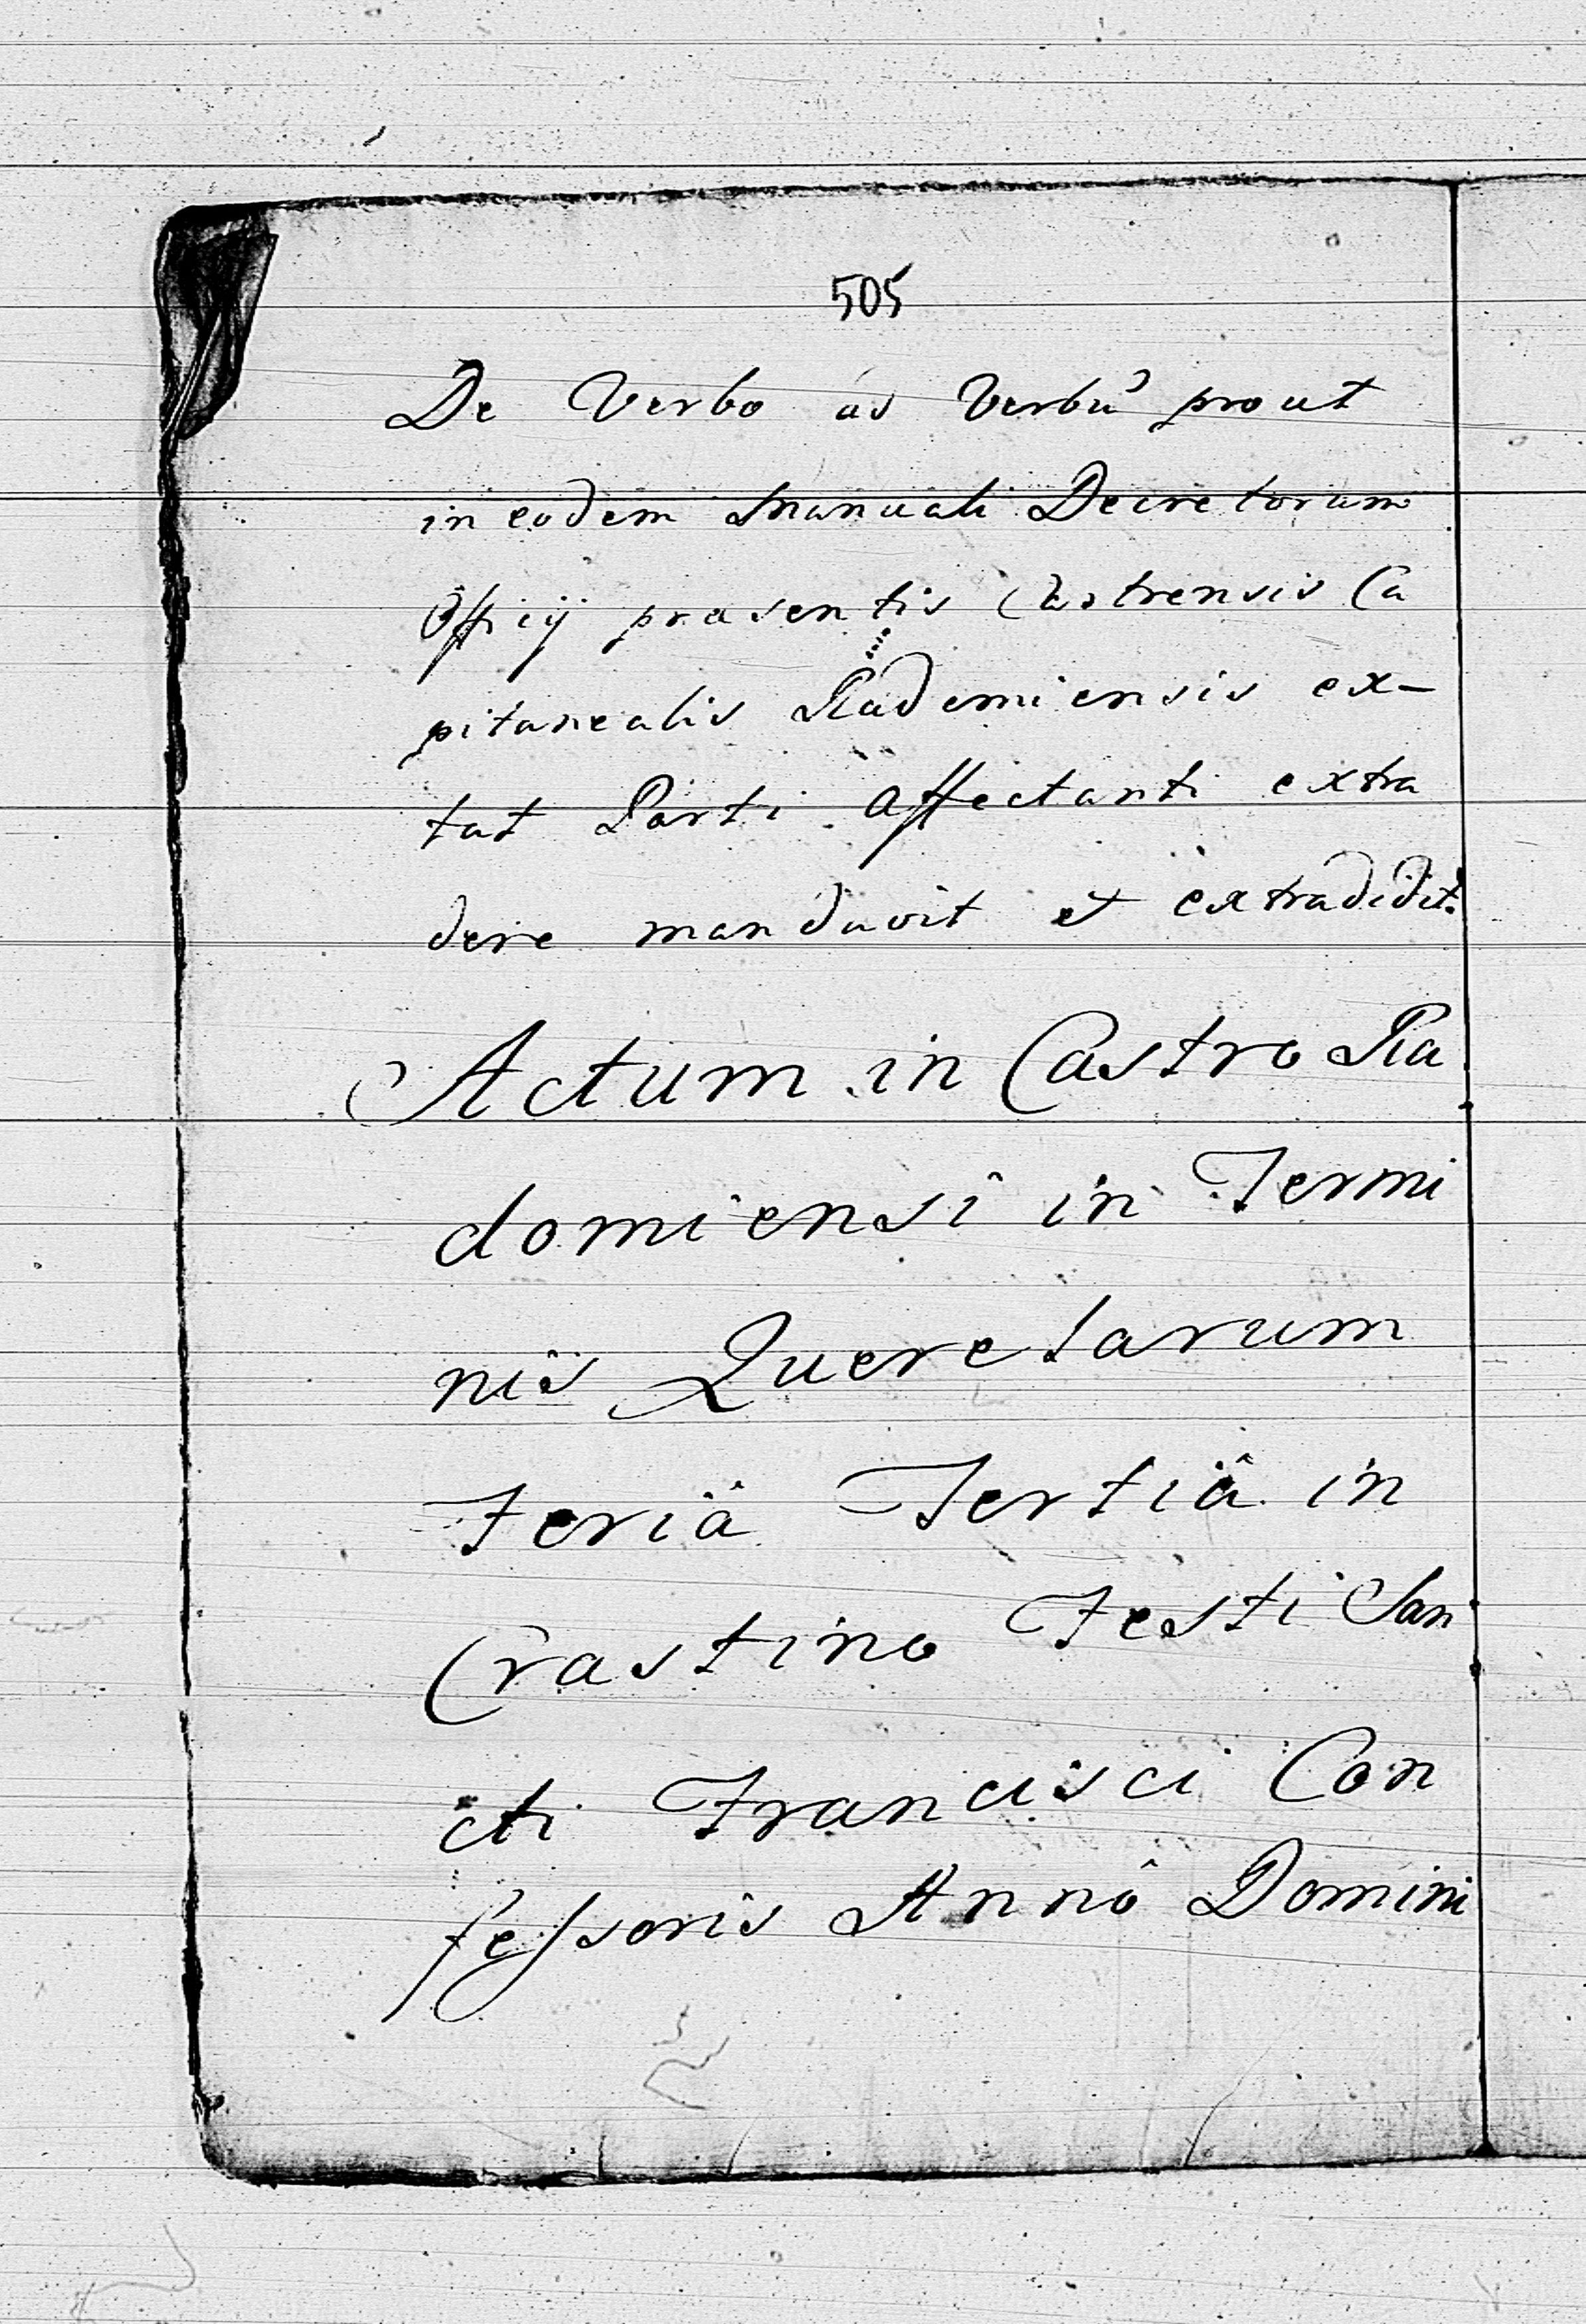 505
De Verbo ad Verbū prout
in eodem Manuali Decretorum
Officij præsentis Castrensis Ca
pitanealis Radomiensis ex–
tat Parti Affectanti extra
dere mandavit et extradidit.
Actum in Castro Ra
domiensi in Termi
nis Querelarum
Feriâ Tertiâ in
Crastino Festi San
cti Francisci Con
fessoris Annô Domini